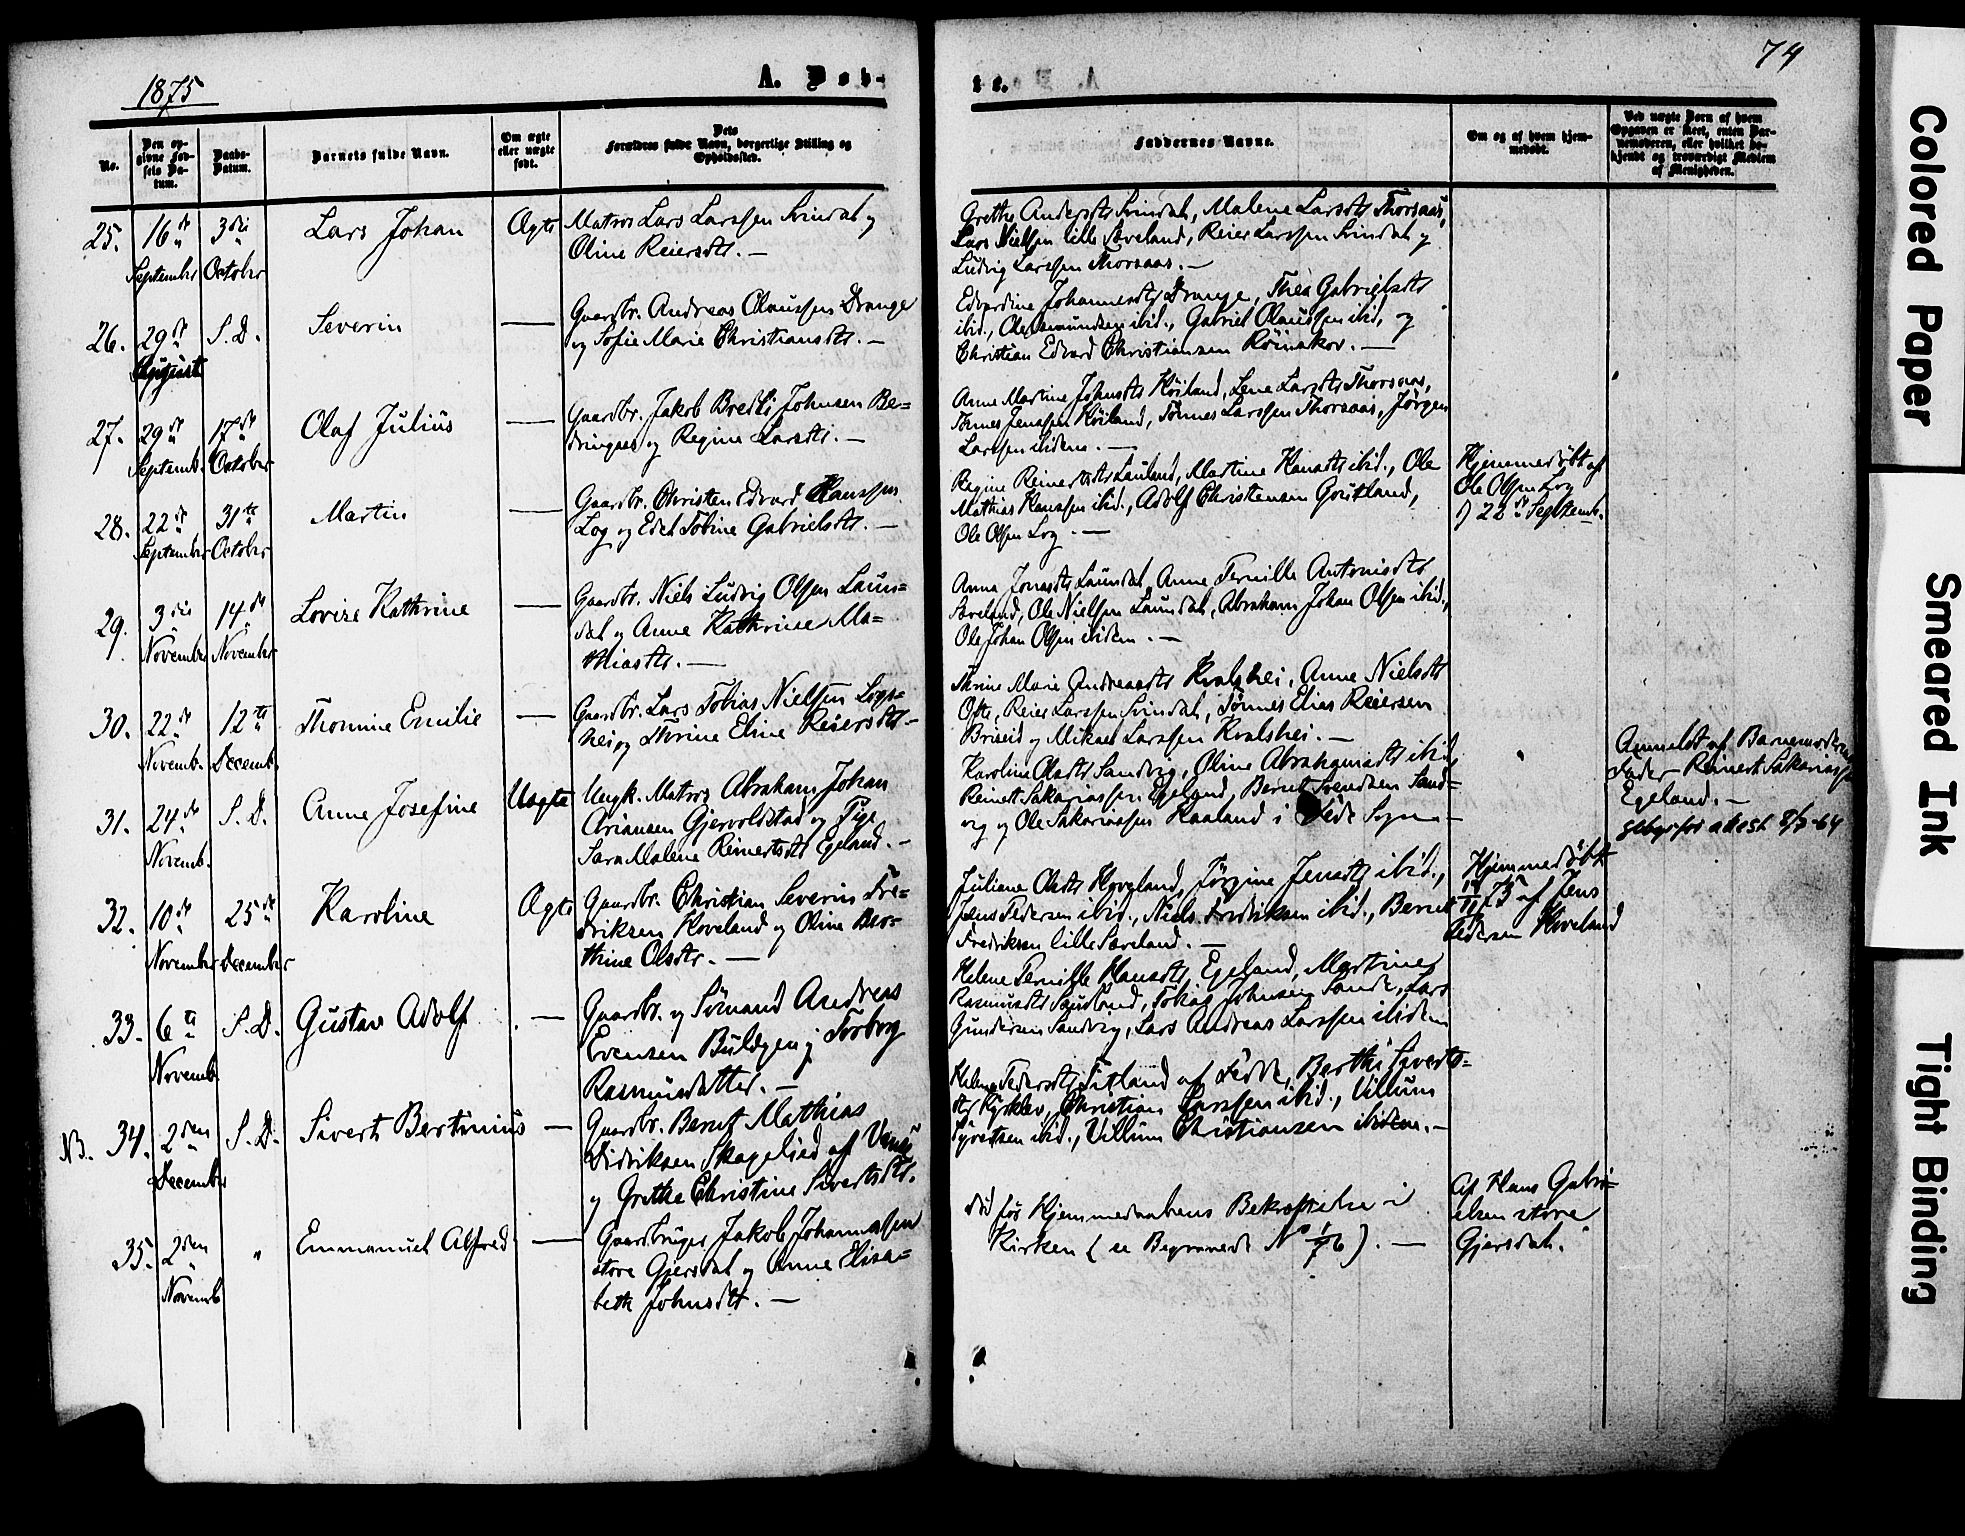 1875
A. Døb-
te.
74
No.
Den op-
givne Fød-
sels Da-
tum.
Daabs-
Datum.
Barnets fulde Navn.
Om ægte
eller uægte
født.
Dets
Forældres fulde Navn, borgerlige Stilling og
Opholdssted.
Faddernes Navne.
Om og af hvem hjem-
medøbt.
Ved uægte Børn af hvem
Opgaven er skeet, enten Bar-
nemoderen, eller hvilket be-
kjendt og troværdigt Medlem
af Menigheden.
25. 16de September 3die October
Lars Johan
Ægte
Matros Lars Larssen Svindal og
Oline Reiersdtr. —
Grethe Andersdtr Svindal, Malene Larsdtr Thorsaas,
Lars Nielsen lille Sæveland, Reier Larssen Svindal og
Ludvig Larssen Thorsaas. —
26. 29de August S. D.
Severin
—
Gaardbr. Andreas Olaussen Drange
og Sofie Marie Christiansdtr. —
Edvardine Johannesdtr Drange, Thea Gabrielsdtr
ibid., Ole Asmundsen ibid., Gabriel Olaussen ibid, og
Christian Edvard Christiansen Röinakov. —
27. 29de Septemb. 17de October
Olaf Julius
—
Gaardbr. Jakob Bredli Johnsen Be-
dringaas og Regine Larsdtr. —
Anne Martine Johnsdtr Höiland, Lene Larsdtr Thorsaas,
Tønnes Jenssen Höiland, Tønnes Larssen Thorsaas, Jørgen
Larssen ibidem. —
28. 22de September 31te October
Martin
—
Gaardbr. Christen Edvard Hanssen
Log og Edel Tobine Gabrielsdtr. —
Regine Reinertsdtr Lauland, Martine Hansdtr ibid., Ole
Mathias Hanssen ibid., Adolf Christensen Goutland,
Ole Olsen Log. —
Hjemmedøbt af
Ole Olsen Log
22de Septemb.
29. 3die November 14de November
Lovise Kathrine
—
Gaardbr. Niels Ludvig Olsen Laun-
dal og Anne Kathrine Ma-
thiasdtr. —
Anne Jonasdtr Laundal, Anne Pernille Antonisdtr
Sæveland, Ole Nielsen Laundal, Abraham Johan Olsen ibid.,
Ole Johan Olsen ibidem. —
30. 22de Novemb. 12te Decemb.
Thomine Emilie
—
Gaardbr. Lars Tobias Nielsen Logs-
hei og Thrine Eline Reiersdtr —
Thrine Marie Andreasdtr Kvalshei, Anne Nielsdtr
Ofte, Reier Larssen Svindal, Tønnes Elias Reiersen
Briseid og Mikael Larssen Kvalshei. —
31. 24de Novemb. S. D.
Anne Josefine
Uægte
Ungk. Matros Abraham Johan
Ariansen Gjervoldstad og Pige
Sara Malene Reinertsdtr Egeland. —
Karoline Olsdtr Sandvig, Oline Abrahamsdtr ibid.,
Reinert Sakariassen Egeland, Bernt Svendsen Sand-
vig og Ole Sakariassen Haaland i Fede Sogn —
Anmeldt af Barnemoderens
Fader Reinert Sakariassen
Egeland. —
32. 10de November 25de December
Karoline
Ægte
Gaardbr. Christian Severin Fre-
driksen Hoveland og Oline Ber-
thine Olsdtr. —
Juliane Olsdtr Hoveland, Jörgine Jensdtr ibid.,
Jens Pedersen ibid., Niels Fredriksen ibid., Bernt
Fredriksen lille Sæveland. —
Hjemmedøbt
14/11 75 af Jens
Pedersen Hoveland
33. 6te Novemb. S. D.
Gustav Adolf
—
Gaardbr. og Sömand Andreas
Evensen Buldgen og Torborg
Rasmusdatter. —
Helene Pernille Hansdtr Egeland, Martine
Rasmusdtr Sausland, Tobias Johnsen Sande, Lars
Gundersen Sandvig, Lars Andreas Larssen ibidem
NB. 34. 2den December S. D.
Sivert Bertinius
—
Gaardbr. Bernt Mathias
Didriksen Skagelied af Vanse
og Grethe Christine Sivertsdtr.
Helene Pedersdtr Titland af Fedde, Berthe Syverts-
dtr Kirklev, Christian Larssen ibid., Villum
Syvertsen ibid., Villum Christiansen ibidem. —
35. 2den Novemb „
Emmanuel Alfred
—
Gaardbruger Jakob Johannessen
store Gjersdal og Anne Elisa-
beth Johnsdtr. —
död før Hjemmedaabens Bekræftelse i
Kirken (se Begravede No 1/76). —
Af Hans Gabri-
elsen store
Gjersdal.
Colored Paper
Smeared Ink
Tight Binding